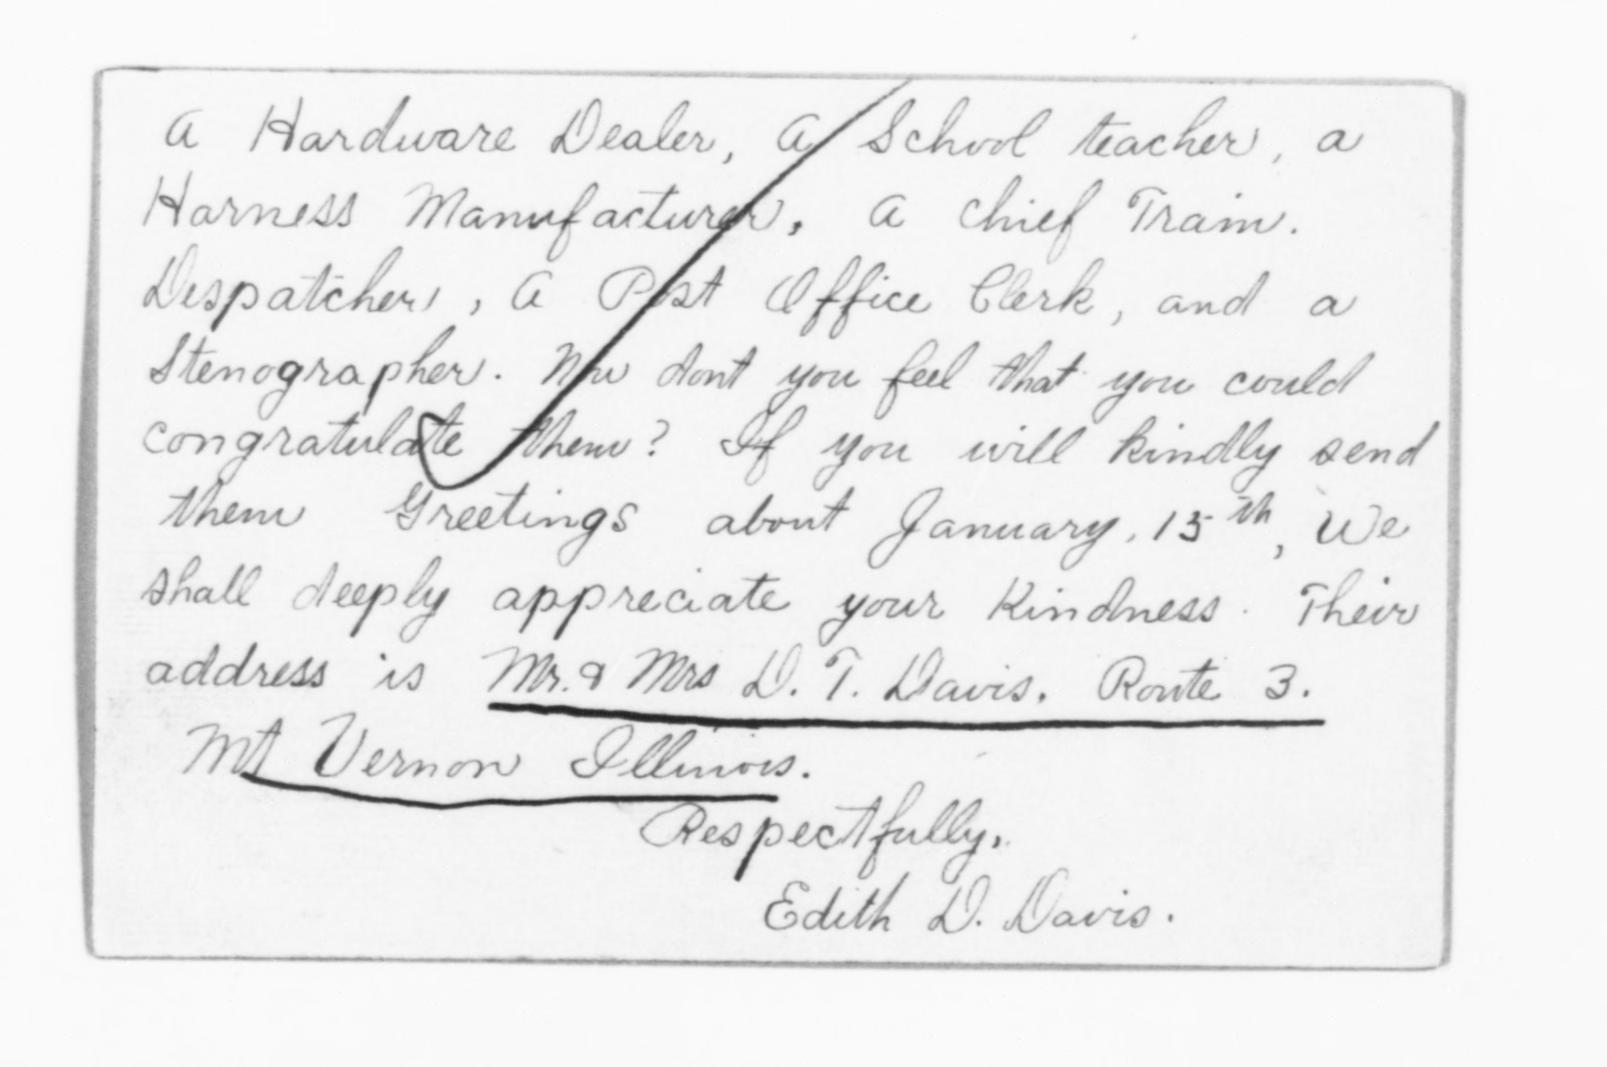 A Hardware Dealer, A School teacher, a
Harness Manufacturer, A Chief Train.
Despatcher, A Post Office Clerk, and a
Stenographer. Now dont you feel that you could
congratulate them? If you will kindly send
them Greetings about January, 15th, We
shall deeply appreciate your Kindness. Their
address is Mr. & Mrs D. T. Davis. Route 3.
Mt Vernon Illinois.
Respectfully,
Edith D. Davis.